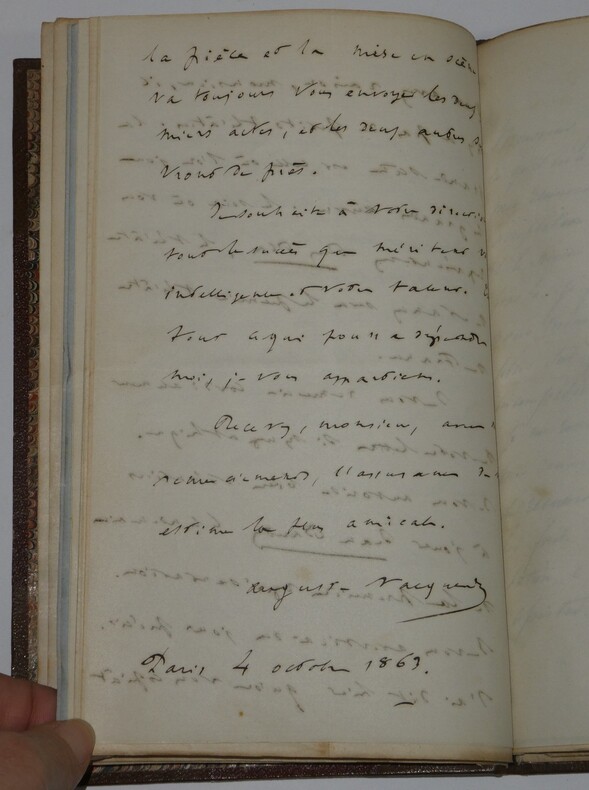 la pièce et la mise en scène
va toujours vous envoyer les deux
miers actes, et les deux autres
vront de près.
Je souhaite à votre direction
tout le succès que méritent
intelligence et votre talent.
tout ce qui pourra dépendre
moi, je vous appartiens.
Recevez, monsieur, avec
remerciements, l'assurance de
estime la plus amicale.
Auguste Vacquerie
Paris 4 octobre 1863.